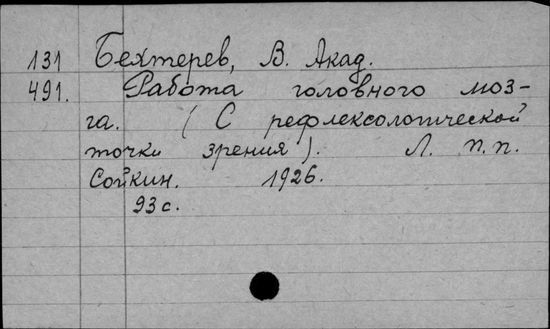 131 Бехтерев, В. Акад.
491. Работа головного моз-
га. (С рефлексологической
точки зрения). Л. П.П.
Сойкин. 1926.
93 с.